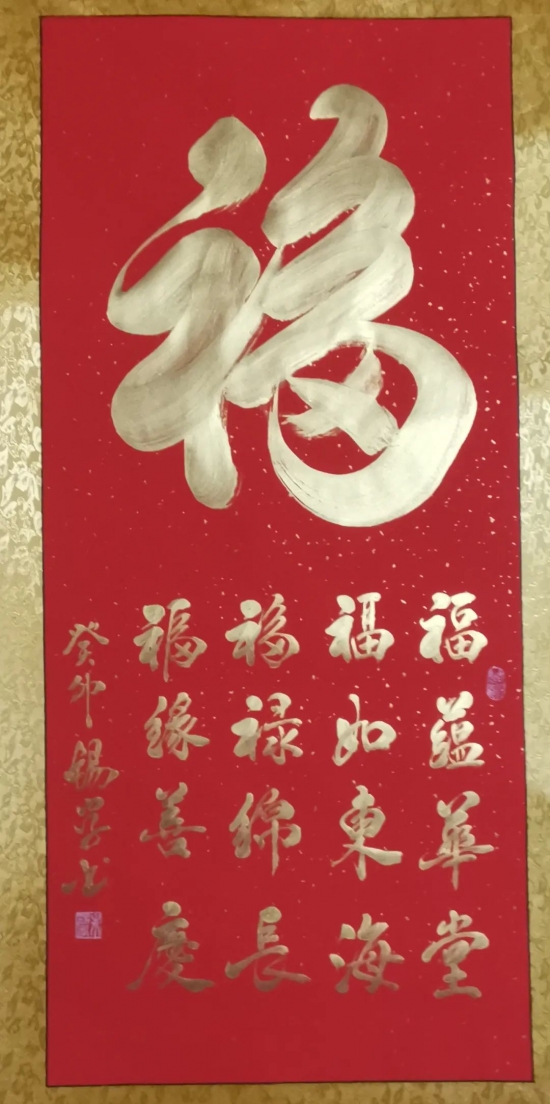 福
福蕴華堂
福如東海
福禄綿長
福緣善慶
癸卯錫